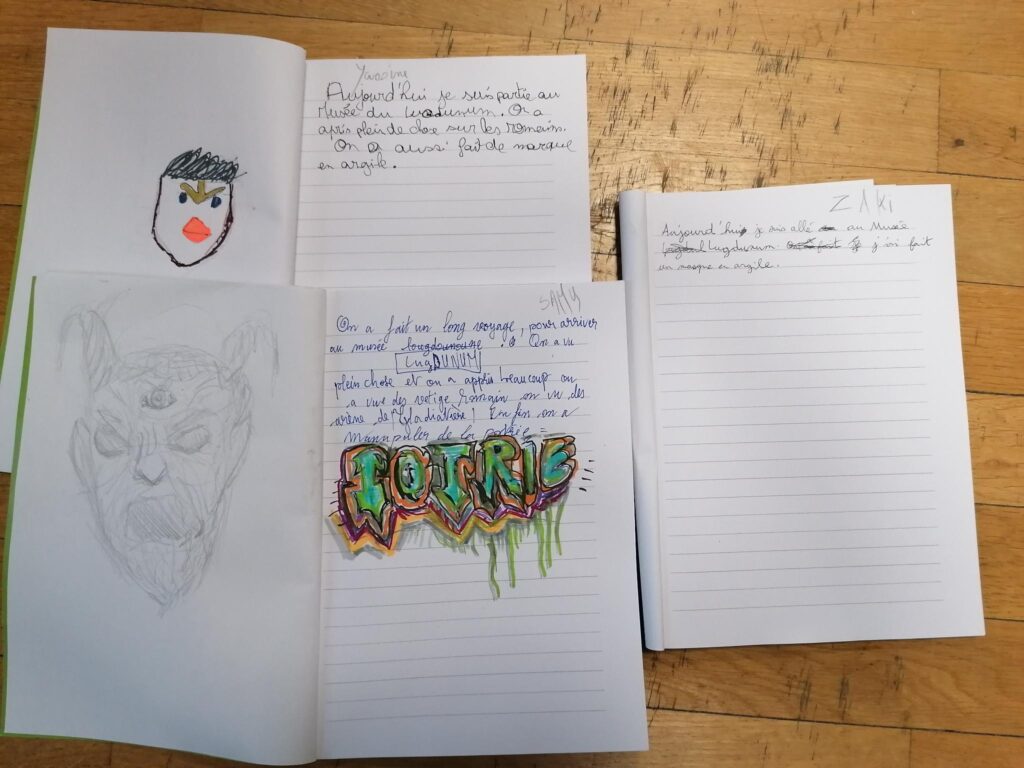 Yassine
Aujourd'hui je suis partie au
Musée du Lugdunum. On a
apris plein de chose sur les romains.
On a aussi fait de masque
en argile.
SAMY
On a fait un long voyage, pour arriver
au musée lougdounoume. On a vu
LugDUNUM
plein chose et on a appris beaucoup on
a vue des vestige Romain on vu des
arène de Gladiateure! Enfin on a
Mannipuler de la potrie =
POTRIE
ZAKi
Aujourd'hui je suis allé au Musée
Lugdunum. j'ai fait
un masque en argile.